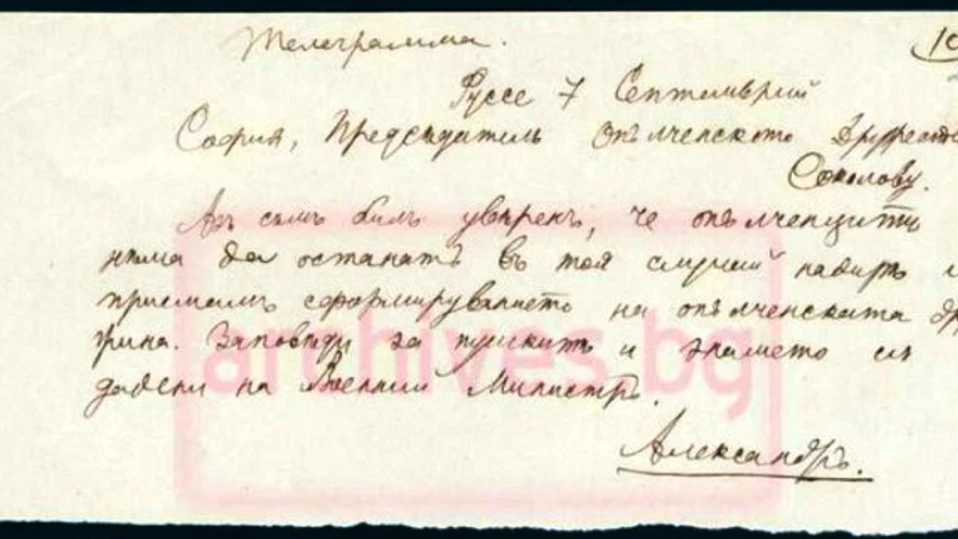 Телеграмма. 10
Руссе 7 Септемврий
София, Председатель Опълченското Дружест
Соколову.
Азъ съмъ билъ увѣренъ, че опълченцитѣ
нѣма да останатъ въ тоя случай надирѣ и
приемамъ сформируванието на опълченската др
жина. Заповѣди за пушкитѣ и знамето съ
дадени на Военний Министръ.
Александръ.
archives.bg